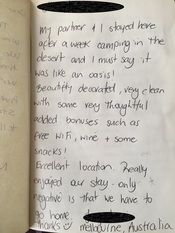 My partner & I stayed here
after a week camping in the
desert and I must say it
was like an oasis!
Beautifully decorated, very clean
with some very thoughtful
added bonuses such as
free WiFi, wine + some
snacks!
Excellent location. Really
enjoyed our stay - only
negative is that we have to
go home.
Thanks Melbourne, Australia